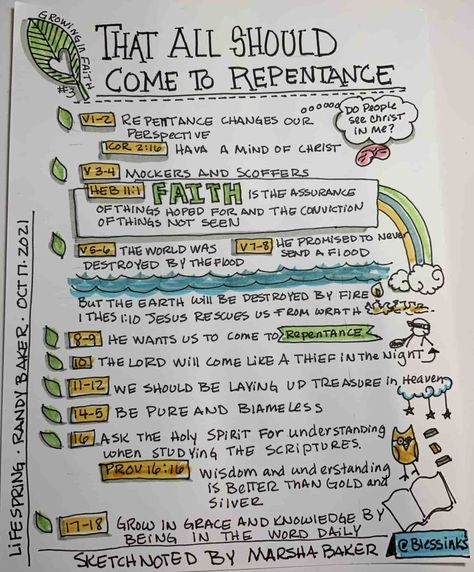 GROWING IN FAITH
#3
THAT ALL SHOULD
COME TO REPENTANCE
DO PEOPLE
SEE CHRIST
IN ME?
V1-2 REPENTANCE CHANGES OUR
PERSPECTIVE
1COR 2:16 HAVA A MIND OF CHRIST
V3-4 MOCKERS AND SCOFFERS
HEB 11:1 FAITH IS THE ASSURANCE
OF THINGS HOPED FOR AND THE CONVICTION
OF THINGS NOT SEEN
V5-6 THE WORLD WAS
DESTROYED BY THE FLOOD
V7-8 HE PROMISED TO NEVER
SEND A FLOOD
BUT THE EARTH WILL BE DESTROYED BY FIRE
1 THES 1:10 JESUS RESCUES US FROM WRATH
8-9 HE WANTS US TO COME TO REPENTANCE
10 THE LORD WILL COME LIKE A THIEF IN THE NIGHT
11-12 WE SHOULD BE LAYING UP TREASURE IN HEAVEN
14-5 BE PURE AND BLAMELESS
16 ASK THE HOLY SPIRIT FOR UNDERSTANDING
WHEN STUDYING THE SCRIPTURES.
PROV 16:16 WISDOM AND UNDERSTANDING
IS BETTER THAN GOLD AND
SILVER
17-18 GROW IN GRACE AND KNOWLEDGE BY
BEING IN THE WORD DAILY
@Blessinks
SKETCHNOTED BY MARSHA BAKER
LIFESPRING · RANDY BAKER · OCT 17. 2021